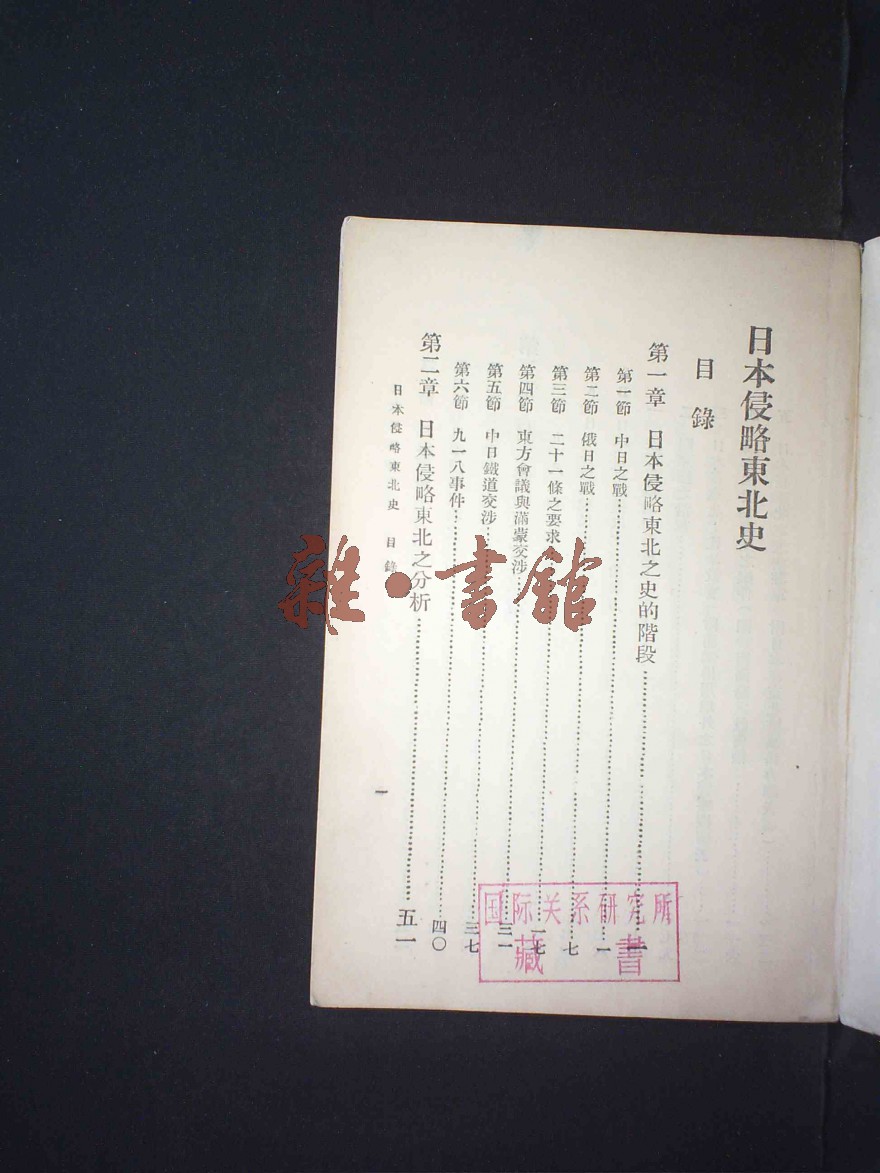 日本侵略東北史
目錄
第一章 日本侵略東北之史的階段 一
第一節 中日之戰 一
第二節 俄日之戰 七
第三節 二十一條之要求 一七
第四節 東方會議與滿蒙交涉 三一
第五節 中日鐵道交涉 三七
第六節 九一八事件 四〇
第二章 日本侵略東北之分析 五一
日本侵略東北史 目錄
一
国际关系研究所
藏書
雜·書館